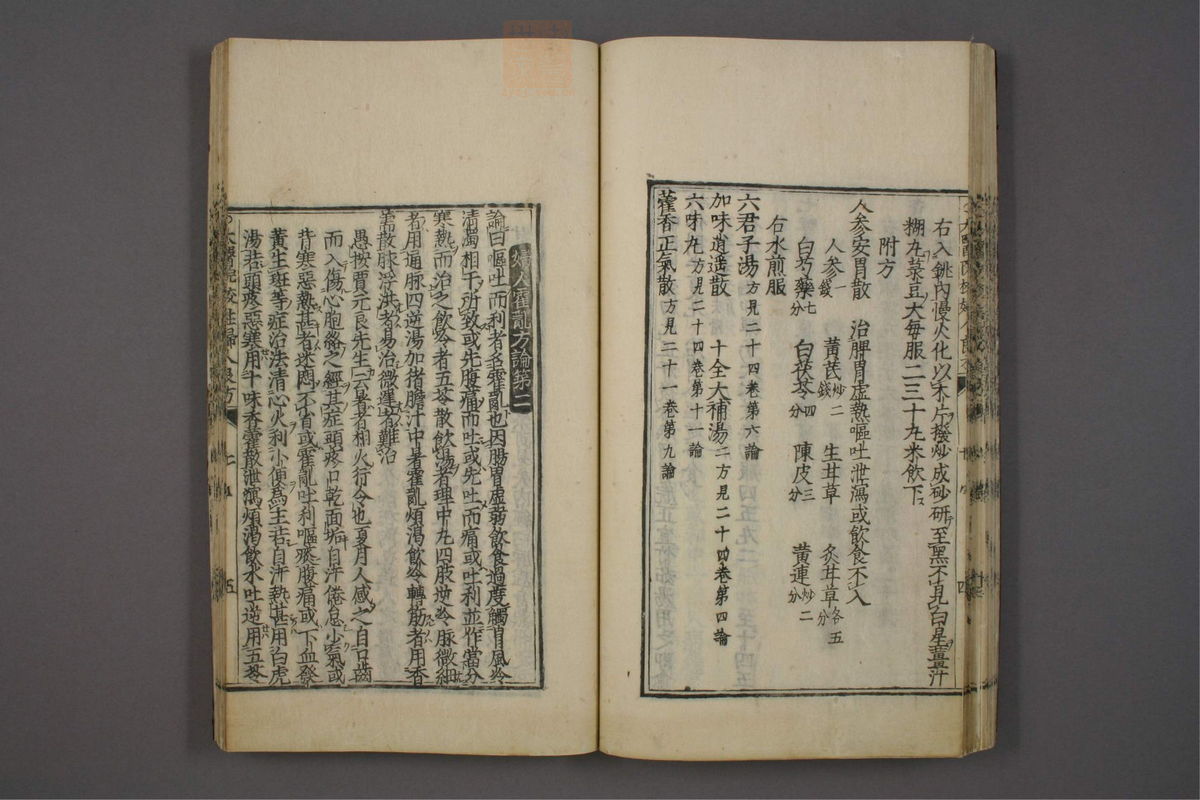 右入銚內慢火化以木片撥炒成砂研至黑不見白星薑汁
糊丸菉豆大每服二三十丸米飲下
附方
人參安胃散 治脾胃虛熱嘔吐泄瀉或飲食不入
人參一錢 黃芪炒二錢 生甘草 炙甘草各五分
白芍藥七分 白茯苓四分 陳皮三分 黃連炒二分
右水煎服
六君子湯方見二十四卷第六論
加味逍遥散 十全大補湯二方見二十四卷第四論
六味丸方見二十四卷第十一論
藿香正氣散方見二十一卷第九論
婦人霍亂方論第二
論曰嘔吐而利者爲霍亂也因腸胃虛弱飲食過度觸冐風冷
淸濁相干所致或先腹痛而吐或先吐而痛或吐利並作當分
寒熱而治之飲冷者五苓散飲湯者理中丸四肢逆冷脉微細
者用通脉四逆湯加猪膽汁中暑霍亂煩渴飲冷轉筋者用香
薷散脉浮洪者易治微遲者難治
愚按賈元良先生云暑者相火行令也夏月人感之自口齒
而入傷心胞絡之經其症頭疼口乾面垢自汗倦怠少氣或
背寒惡熱甚者迷悶不省或霍亂吐利嘔痰腹痛或下血發
黃生斑等症治法清心火利小便爲主若自汗熱甚用白虎
湯若頭疼惡寒用十味香薷散泄瀉煩渴飲水吐逆用五苓
太醫院校註婦人良方
五